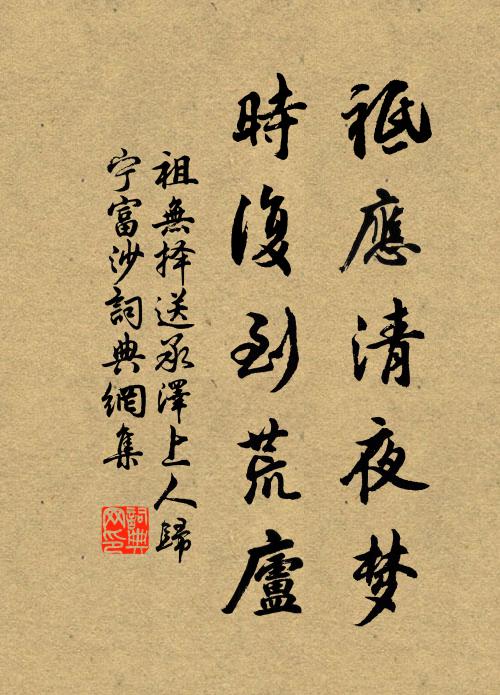 祗應清夜梦
時復到荒廬
祖無择送承澤上人歸
宁富沙詞典網集
詞典网印